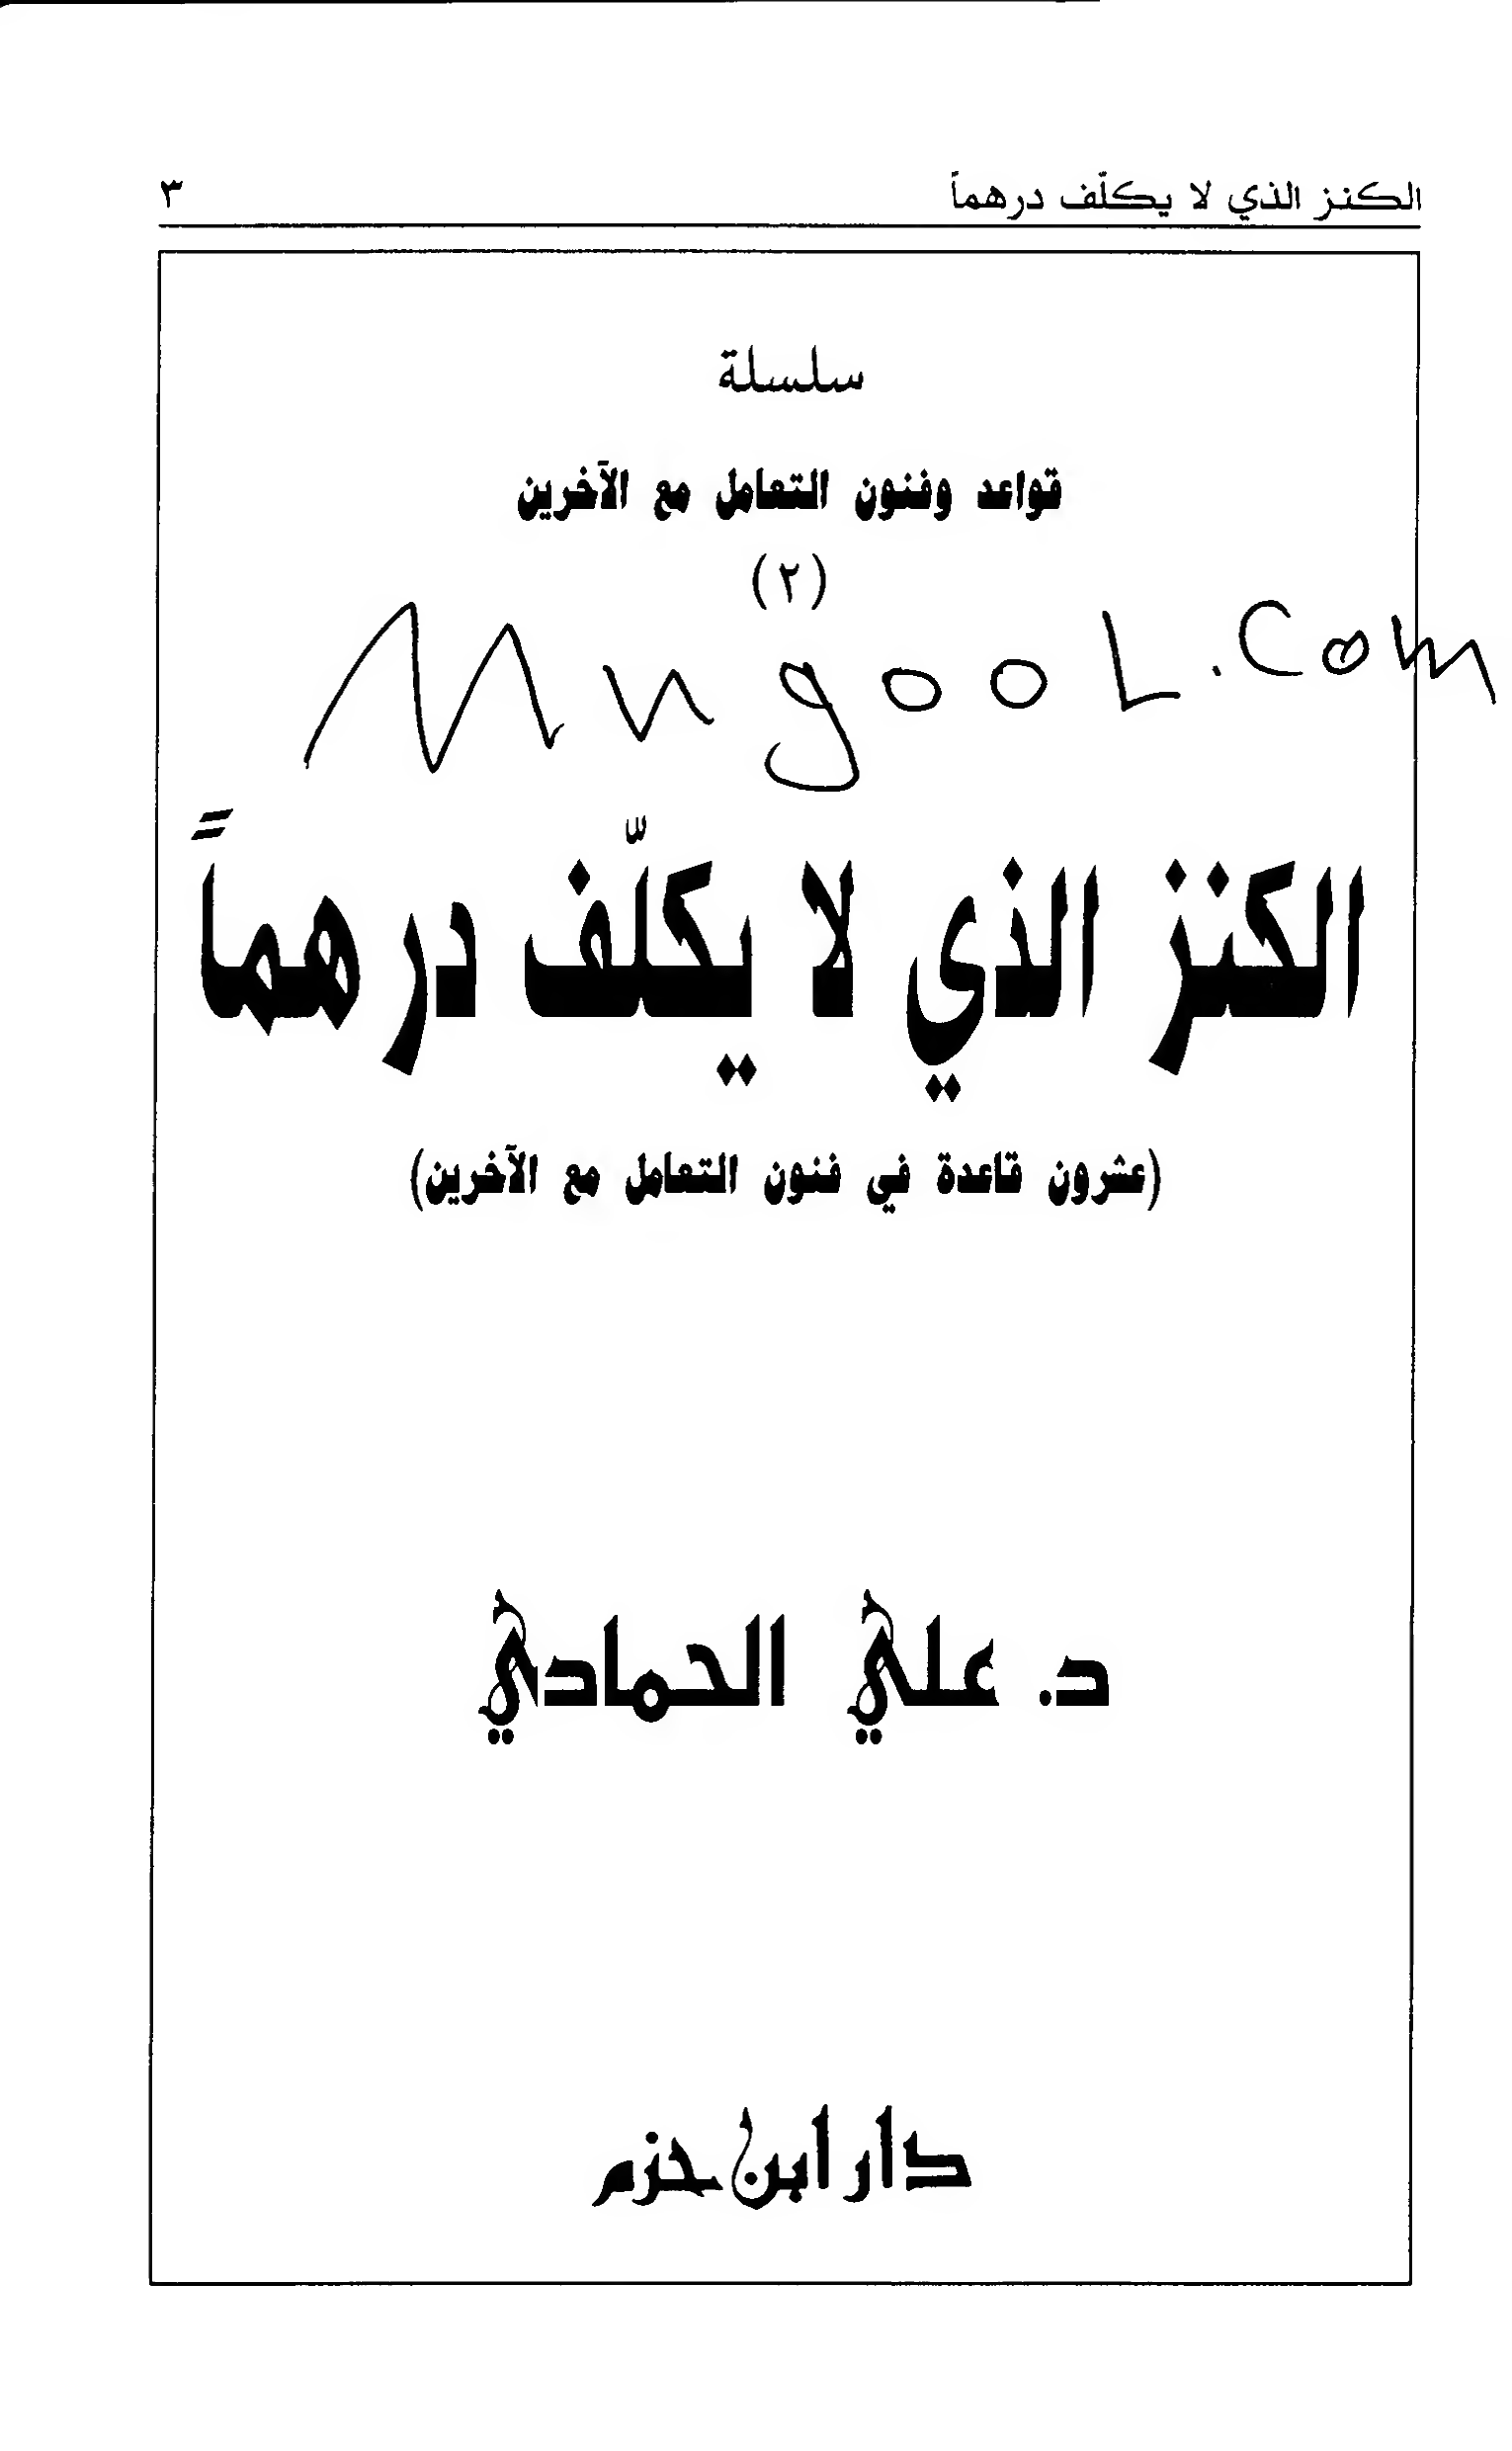 الكنز الذي لا يكلّف درهماً ٣
سلسلة
قواعد وفنون التعامل مع الآخرين
(٢)
Mngool.com
الكنز الذي لا يكلّف درهماً
(عشرون قاعدة في فنون التعامل مع الآخرين)
د. علي الحمادي
دار ابن حزم